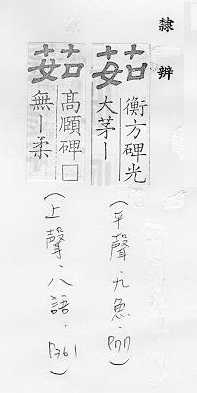 隸辨
茹
衡方碑光
大茅｜
(平聲.九魚.P77)
茹
高頤碑□
無｜柔
(上聲.八語.P361)